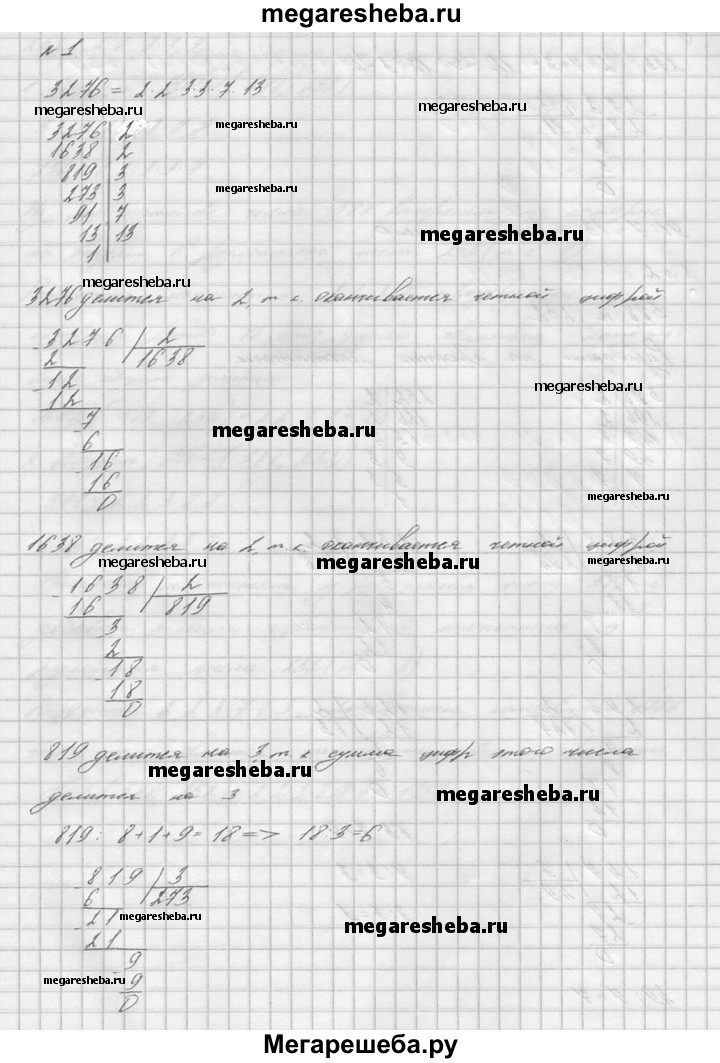 megaresheba.ru
№ 1
3276 = 2·2·3·3·7·13
megaresheba.ru
megaresheba.ru
megaresheba.ru
3276 | 2
1638 | 2
819 | 3
273 | 3
91 | 7
13 | 13
1
megaresheba.ru
megaresheba.ru
megaresheba.ru
3276 делится на 2, т.к. оканчивается четной цифрой
3276 | 2
2 1638
12
12
7
6
16
16
0
megaresheba.ru
megaresheba.ru
megaresheba.ru
1638 делится на 2, т.к. оканчивается четной цифрой
megaresheba.ru
megaresheba.ru
megaresheba.ru
1638 | 2
16 819
3
2
18
18
0
819 делится на 3, т.к. сумма цифр этого числа
megaresheba.ru
делится на 3
megaresheba.ru
819: 8+1+9=18 => 18:3=6
819 | 3
6 273
21
21
9
9
0
megaresheba.ru
megaresheba.ru
megaresheba.ru
Мегарешеба.ру